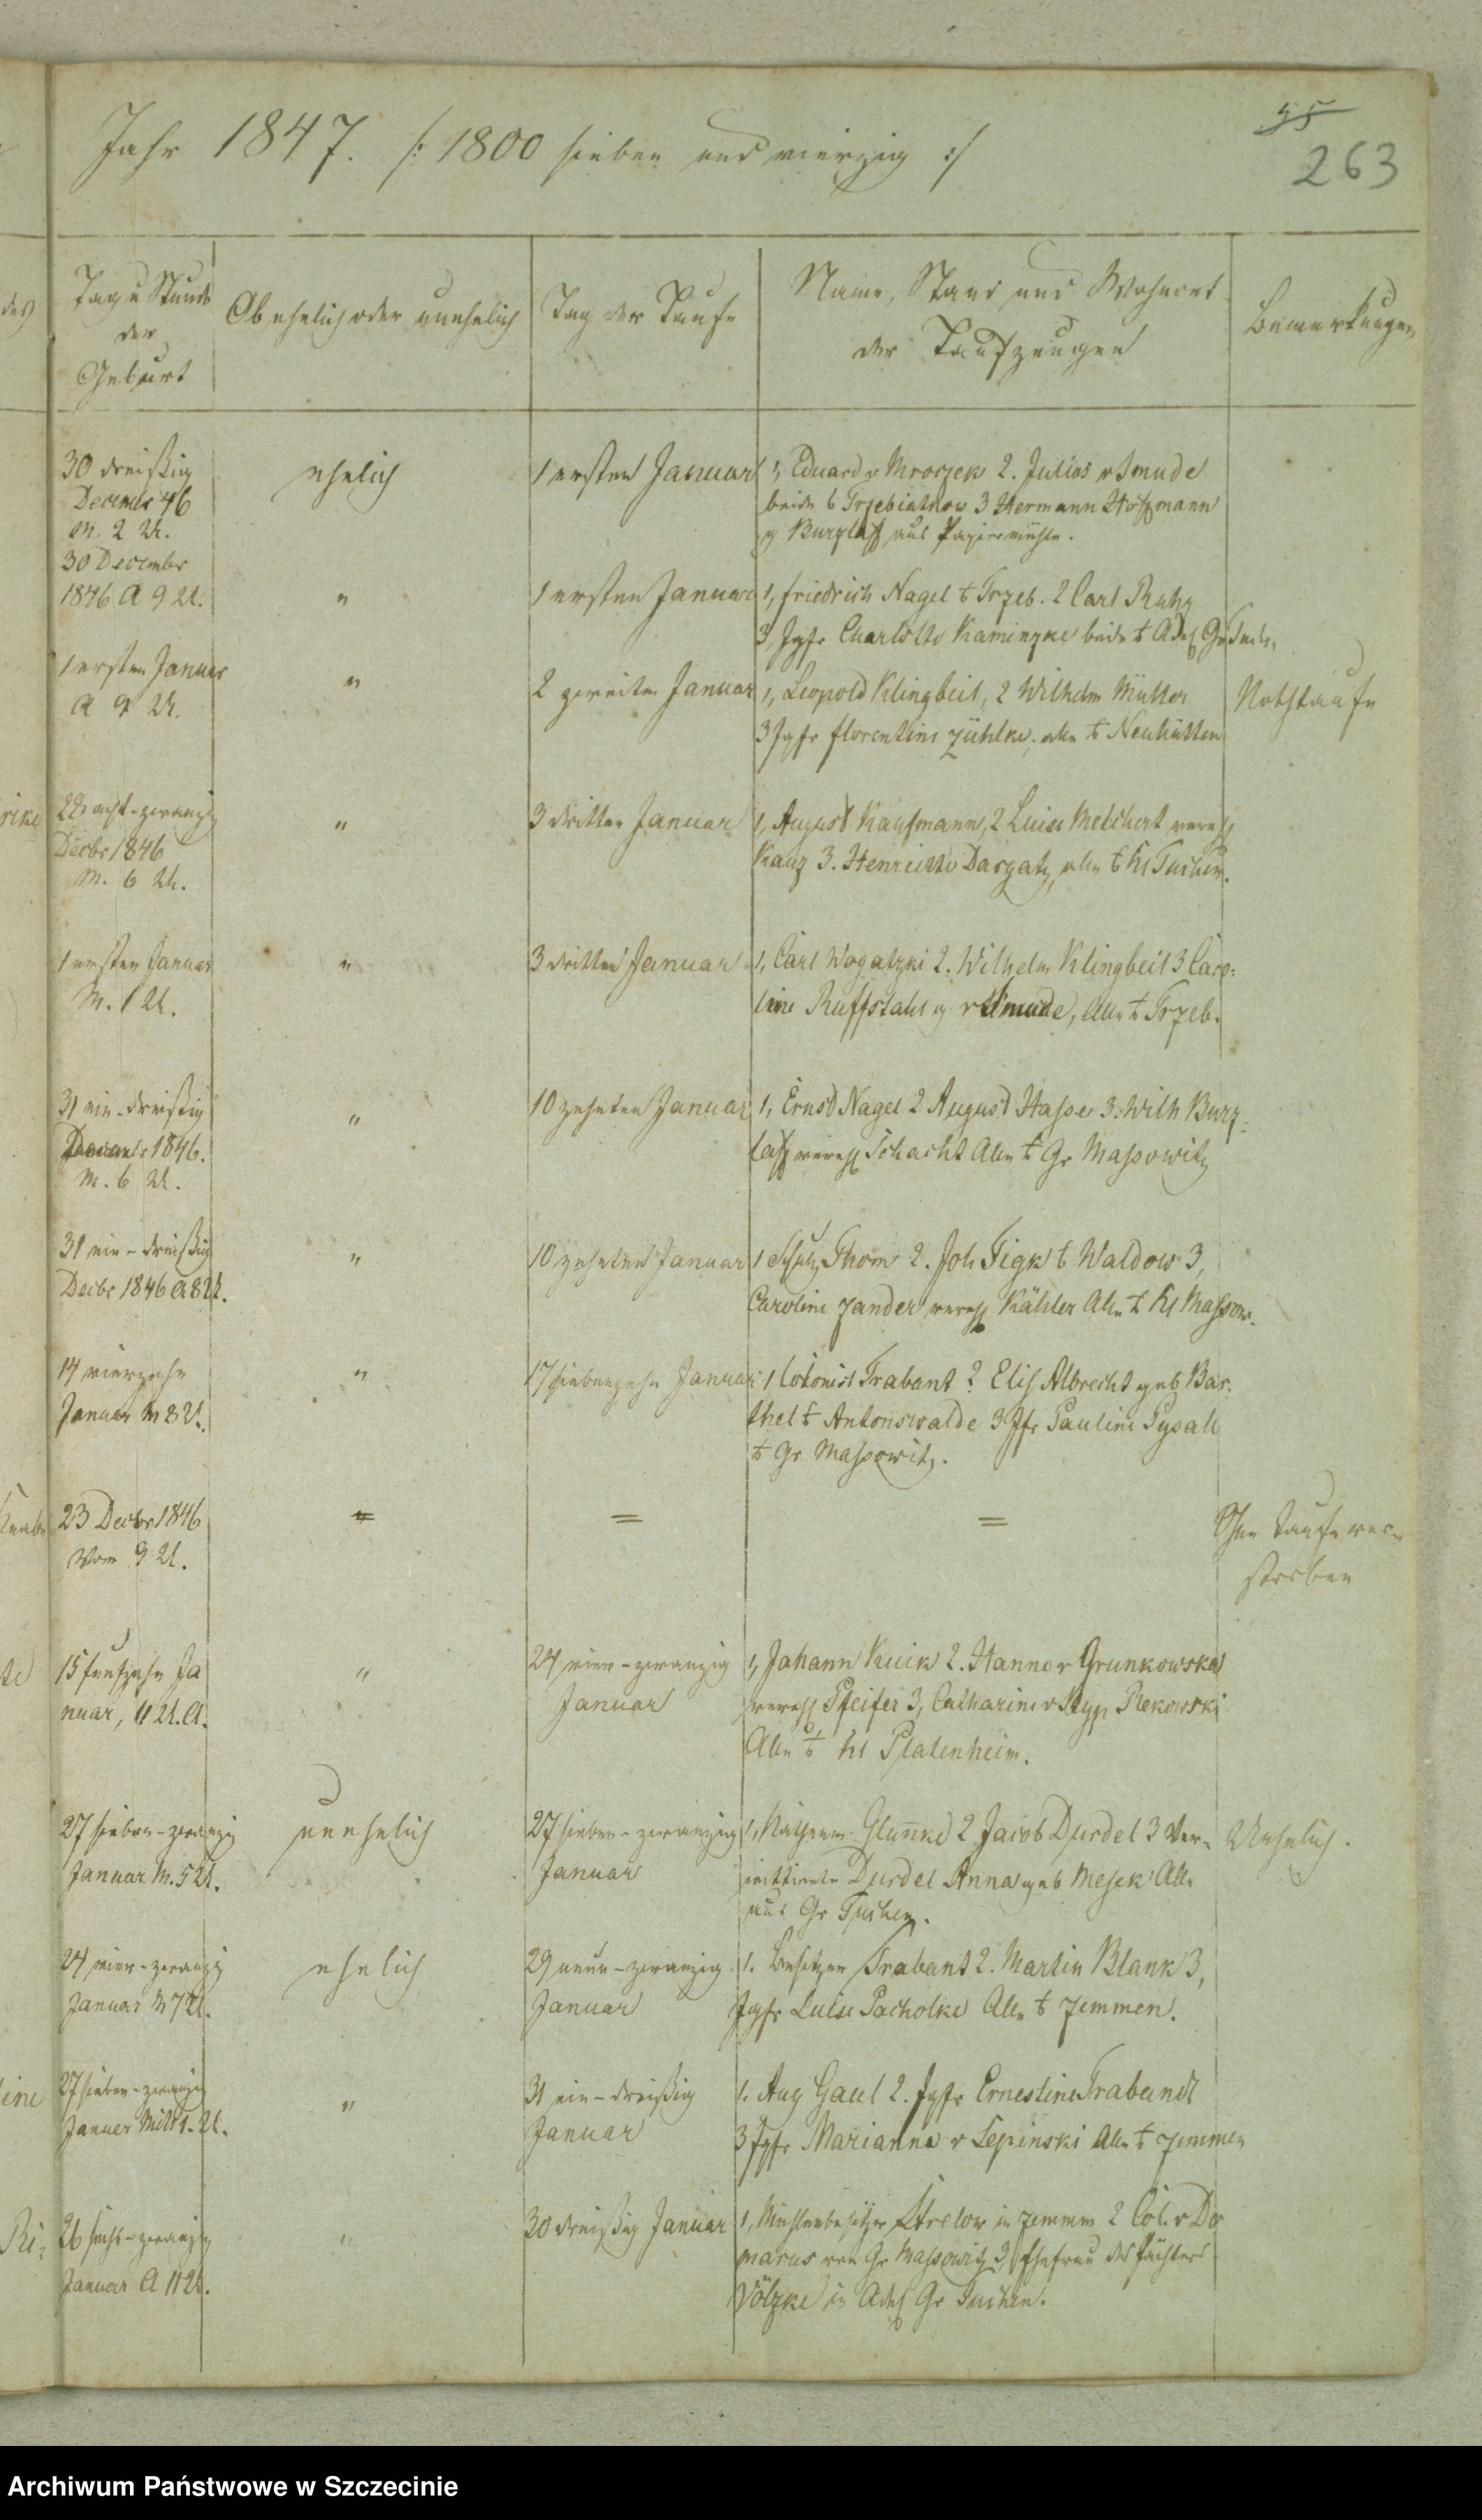 Jahr 1847. /: 1800 sieben und vierzig :/
45
263
Tag u Stunde
der
Geburt
Ob ehelich oder unehelich
Tag der Taufe
Name, Stand und Wohnort
der Taufzeugen
Bemerkungen
30 dreißig
December 46
M. 2 U.
ehelich
1 ersten Januar
1, Eduard v Mroczek 2. Julius v Smude
beide Trzebiatkow 3 Hermann Hoffmann
Burzlaff aus Papiermühle.
30 December
1846 A 9 U.
"
1 ersten Januar
1, Friedrich Nagel Trzeb. 2 Carl Ruhz
3, Jgfr Charlotte Kaminzke beide Adel Gr Tuch.
1 ersten Januar
A 9 U.
"
2 zweiten Januar
1, Leopold Klingbeil, 2 Wilhelm Müller
3 Jgfr Florentine Zühlke, alle Neuhütten
Nothtaufe
28 acht-zwanzig
Decbr 1846
M. 6 U.
"
3 dritten Januar
1, August Kaufmann, 2 Luise Melchert vereh
Kauz 3. Henriette Dargatz, alle Kl Tuchen.
1 ersten Januar
M. 1 U.
"
3 dritten Januar
1, Carl Wogatzki 2. Wilhelm Klingbeil 3 Caro=
line Ruffstahl v Smude, Alle Trzeb.
31 ein-dreißig
Decembr 1846.
M. 6 U.
"
10 zehnten Januar
1, Ernst Nagel 2 August Hasse 3. Wilh Burz=
laff vereh Schacht Alle Gr Massowitz
31 ein-dreißig
Decbr 1846 A 8 U.
"
10 zehnten Januar
1 Schulz Thom 2. Joh Figk Waldow 3,
Caroline Zander vereh Kähler Alle Kl Massow.
14 vierzehn
Januar M 8 U.
"
17 siebenzehn Januar
1 Colonist Trabant 2 Elis Albrecht geb Bar=
thel Antonswalde 3 Jfr Pauline Pysall
Gr Massowitz.
23 Decbr 1846
Vom 9 U.
=
=
=
Ohne Taufe ver=
storben
15 funfzehn Ja
nuar, 11 U. A.
"
24 vier-zwanzig
Januar
1, Johann Kuik 2. Hanne v Grunkowska
vereh Pfeifer 3, Catharine v Styp Rekowski
Alle Kl Platenheim.
27 sieben-zwanzig
Januar M. 5 U.
unehelich
27 sieben-zwanzig
Januar
1, Glunke 2 Jacob Durdel 3 Ver=
wittwete Durdel Anna geb Mesek Alle
aus Gr Tuchen.
Unehelich.
24 vier-zwanzig
Januar M 7 U.
ehelich
29 neun-zwanzig
Januar
1. Besitzer Trabant 2. Martin Blank 3,
Jgfr Luise Pacholke Alle Zemmen.
27 sieben-zwanzig
Januar Mitt 1. U.
"
31 ein-dreißig
Januar
1. Aug Gaul 2. Jgfr Ernestine Trabandt
3 Jgfr Marianna v Lepinski Alle Zemmen
26 sechs-zwanzig
Januar A 11 U.
"
30 dreißig Januar
1, Mühlenbesitzer Strelow in Zemmen 2 Col. v Do
marus von Gr Massowitz 3, Ehefrau des Pächters
Völzke in Adel Gr Tuchen.
Archiwum Państwowe w Szczecinie